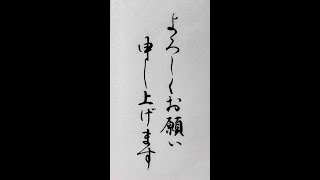 よろしくお願い
申し上げます